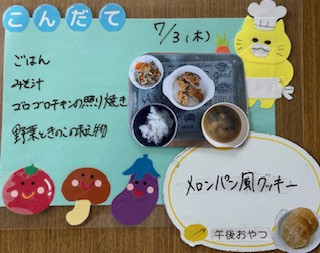 こんだて
7/3(木)
ごはん
みそ汁
ゴロゴロチキンの照り焼き
野菜ときのこの和え物
good
メロンパン風クッキー
午後おやつ